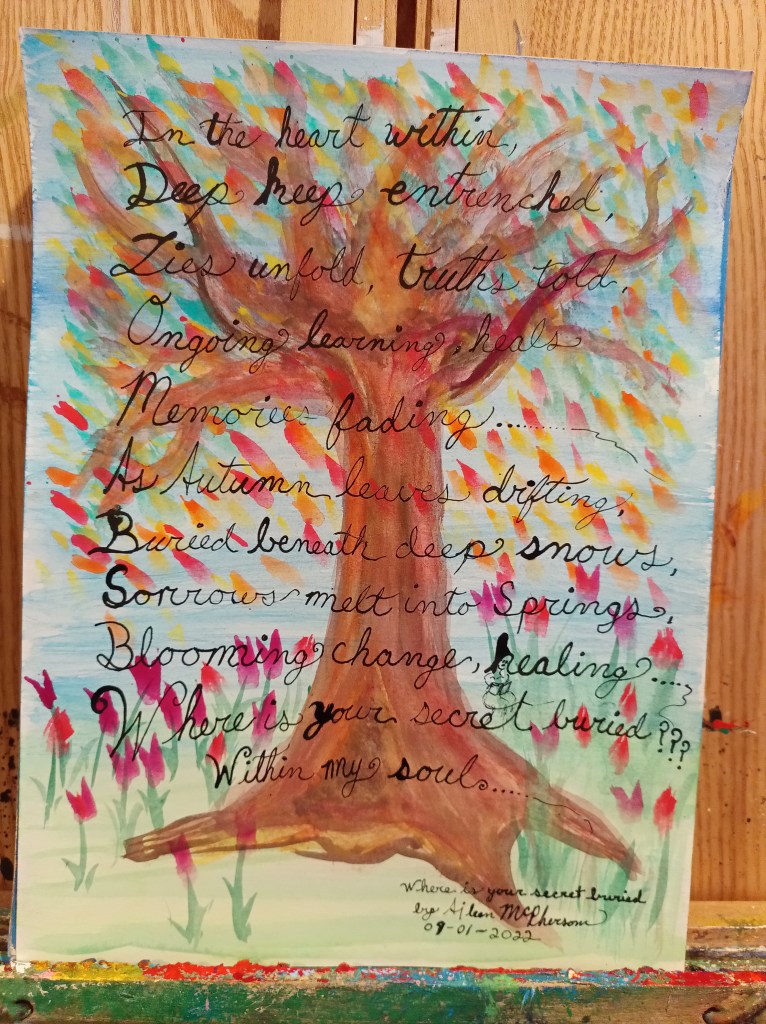 In the heart within,
Deep keep entrenched,
Lies unfold, truths told,
Ongoing learning, heals
Memories fading..........
As Autumn leaves drifting,
Buried beneath deep snows,
Sorrows melt into Springs,
Blooming change, healing....
Where is your secret buried???
Within my soul.....
Where is your secret buried
by Aileen McPherson
09-01-2022